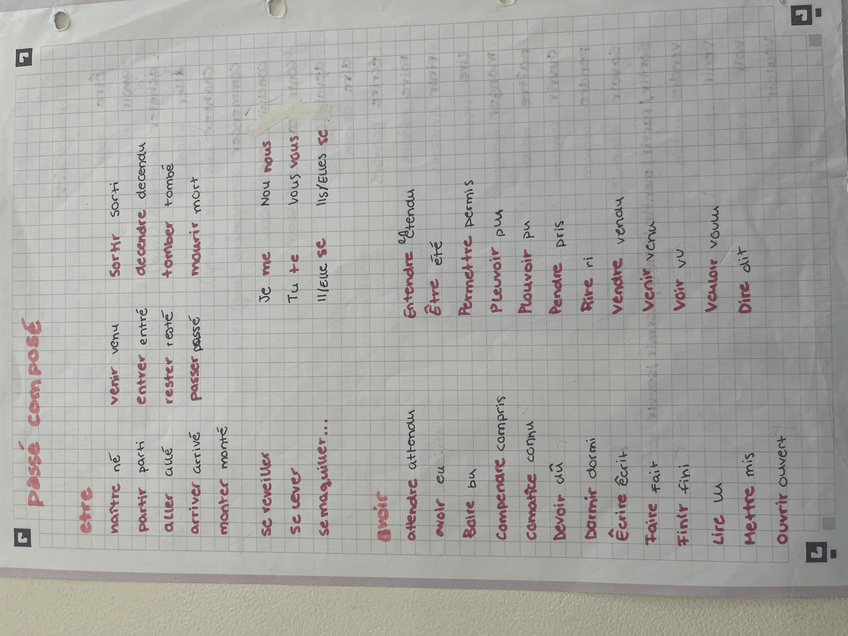 passé composé
etre
naître né venir venu sortir sorti
partir parti entrer entré decendre decendu
aller allé rester resté tomber tombé
arriver arrivé passer passé mourir mort
monter monté
se reveiller Je me Nou nous
se lever Tu te Vous vous
se maquiller... Il/Elle se Ils/Elles se
avoir
attendre attendu Entendre entendu
avoir eu Être été
Boire bu Permettre permis
compendre compris Pleuvoir plu
connaitre connu Plouvoir pu
Devoir dû Pendre pris
Dormir dormi Rire ri
Écrire écrit Vendre vendu
Faire fait Venir venu
Finir fini Voir vu
Lire lu Vouloir voulu
Mettre mis Dire dit
ouvrir ouvert